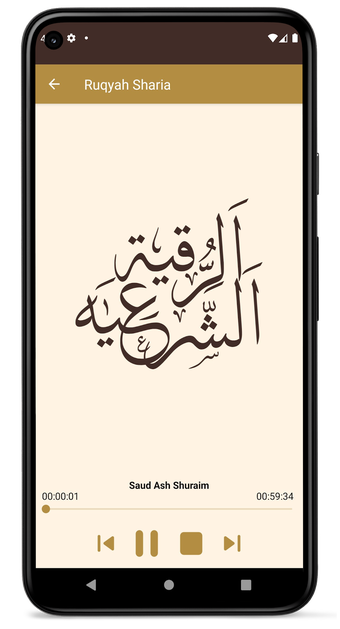 Ruqyah Sharia
اَلرُّقية
اَلشَّرعيه
Saud Ash Shuraim
00:00:01
00:59:34